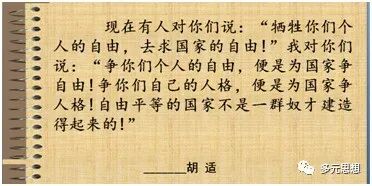 现在有人对你们说：“牺牲你们个
人的自由，去求国家的自由！”我对你们
说：“争你们个人的自由，便是为国家争
自由！争你们自己的人格，便是为国家争
人格！自由平等的国家不是一群奴才建造
得起来的！”
______胡 适
多元思想